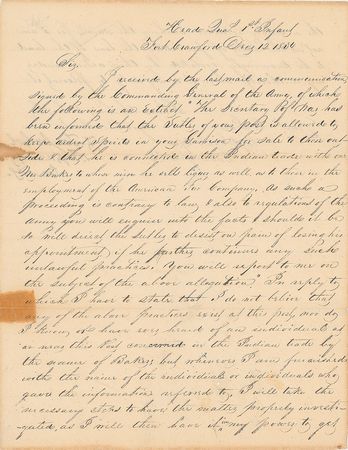 Head Qua. 1st Infant
Fort Crawford Dec 12 1830
Sir,
I received by the last mail a communication
signed by the Commanding General of the Army, of which
the following is an extract "The Secretary of War has
been informed that the Sutler of your post is allowed to
keep ardent spirits in your Garrison for sale to those out
side & that he is connected in the Indian trade with one
Mr Baker to whose men he sells liquor as well as to those in the
employment of the American Fur Company. As such a
proceeding is contrary to law, & also to regulations of the
Army you will enquire into the facts & should it be
so will direct the Sutler to desist on pain of losing his
appointment if he further continues any such
unlawful practices. You will report to me on
the subject of the above allegation." In reply to
which I have to state that I do not believe that
any of the above practices exist at this post, nor do
I know, or have ever heard of an individual at
or near this Post concerned in the Indian trade by
the name of Baker, but whenever I am furnished
with the name of the individual or individuals who
gave the information referred to, I will take the
necessary steps to have the matter properly investi-
gated as I will then have it in my power to get